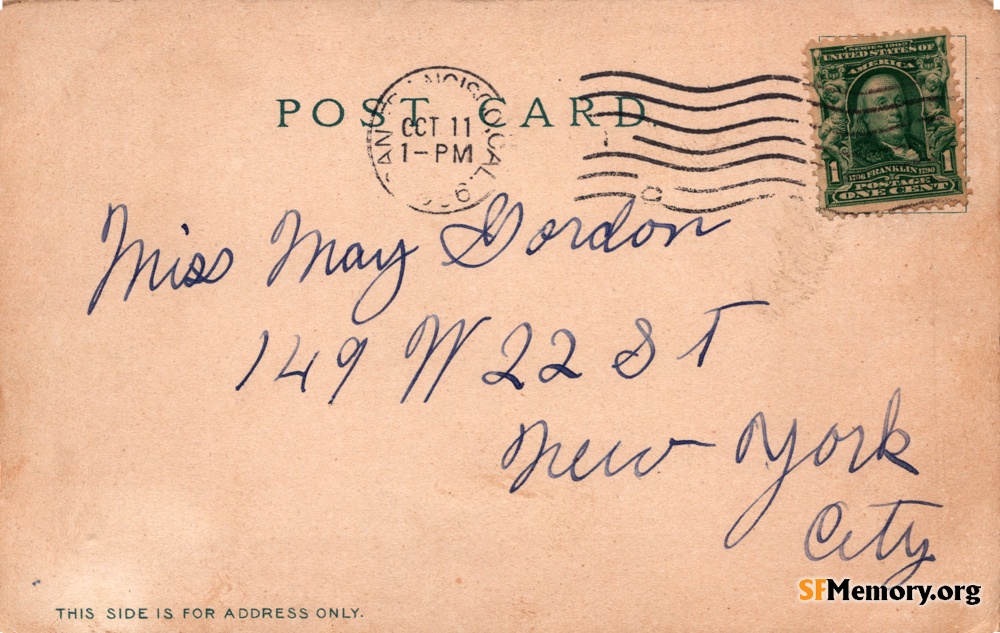 POST CARD
SAN FRANCISCO, CAL.
OCT 11
1-PM
SERIES 1902
UNITED STATES OF
AMERICA
1 1
1706 FRANKLIN 1790
POSTAGE
ONE CENT
Miss May Gordon
149 W 22 St
New York
City
THIS SIDE IS FOR ADDRESS ONLY.
SFMemory.org